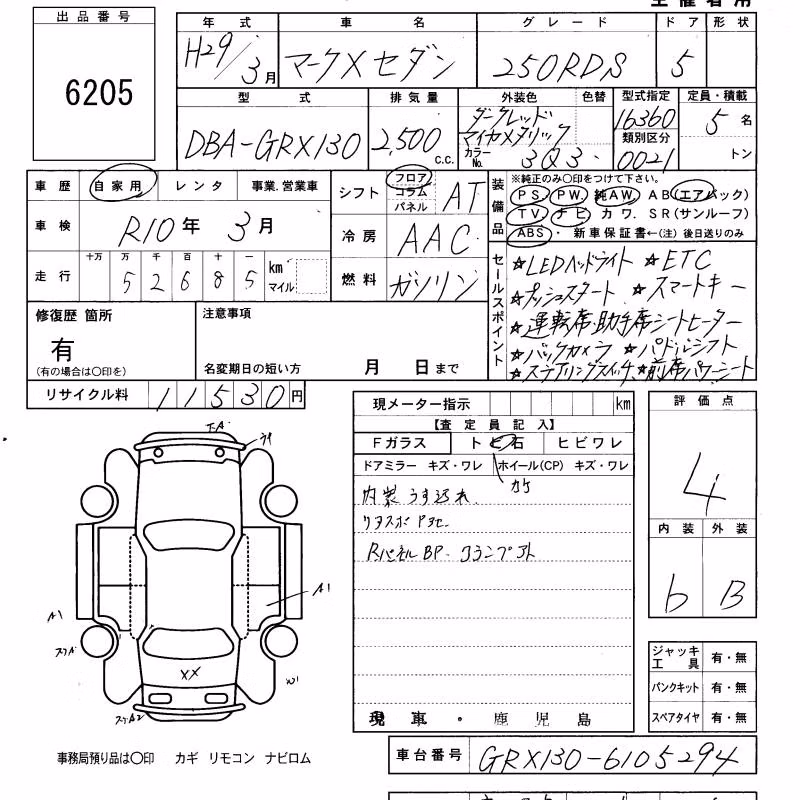 出品番号
6205
年式 車名 グレード ドア 形状
H29/3月 マークXセダン 250RDS 5
型式 排気量 外装色 色替 型式指定 定員・積載
DBA-GRX130 2,500 c.c. ダークレッドマイカメタリック 16360 5名
カラーNo. 3Q3 類別区分 0021 トン
車歴 自家用 レンタ 事業.営業車
車検 R10年 3月
走行 十万 万 千 百 十 一
52685 km マイル
シフト フロア コラム パネル AT
冷房 AAC
燃料 ガソリン
装備品
※純正のみ○印をつけて下さい。
PS. PW. 純AW. AB(エアバック)
TV ナビ カワ. SR(サンルーフ)
ABS・ 新車保証書←(注) 後日送りのみ
セールスポイント
☆LEDヘッドライト ☆ETC
☆プッシュスタート ☆スマートキー
☆運転席・助手席シートヒーター
☆バックカメラ ☆パドルシフト
☆ステアリングスイッチ ☆前席パワーシート
修復歴 箇所
有
(有の場合は○印を)
注意事項
名変期日の短い方 月 日まで
リサイクル料 11530円
現メーター指示 km
【査定員記入】
Fガラス トビ石 ヒビワレ
ドアミラー キズ・ワレ ホイール(CP) キズ・ワレ
内装うす汚れ
RパネルBP.
現 車・鹿児島
評価点
4
内装 外装
b B
ジャッキ工具 有・無
パンクキット 有・無
スペアタイヤ 有・無
A1
A1
XX
W1
事務局預り品は○印 カギ リモコン ナビロム
車台番号 GRX130-6105294